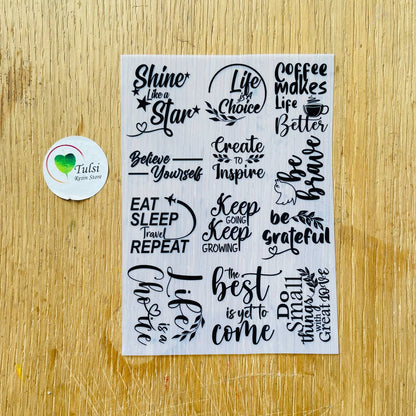 Shine
Like a
Star
Life
IS A
Choice
Coffee
makes
Life
Better
Tulsi
Resin Store
Believe
Yourself
Create
TO
Inspire
be
brave
EAT
SLEEP
Travel
REPEAT
Keep
GOING
Keep
GROWING
be
grateful
Life
is a
Choice
the
best
is yet to
come
Do
Small
things
with a
Great love